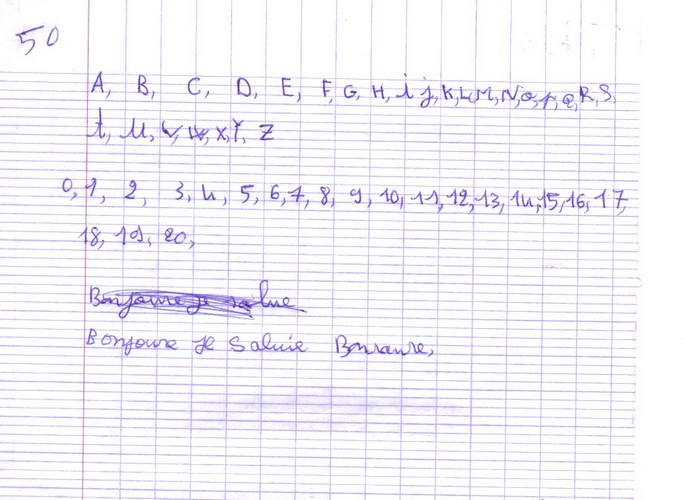 50
A, B, C, D, E, F, G, H, i j, K, L, M, N, o, p, Q, R, S,
t, U, V, W, X, Y, Z
0, 1, 2, 3, 4, 5, 6, 7, 8, 9, 10, 11, 12, 13, 14, 15, 16, 17,
18, 19, 20,
Bonjoure je salue
Bonjoure je Saluie